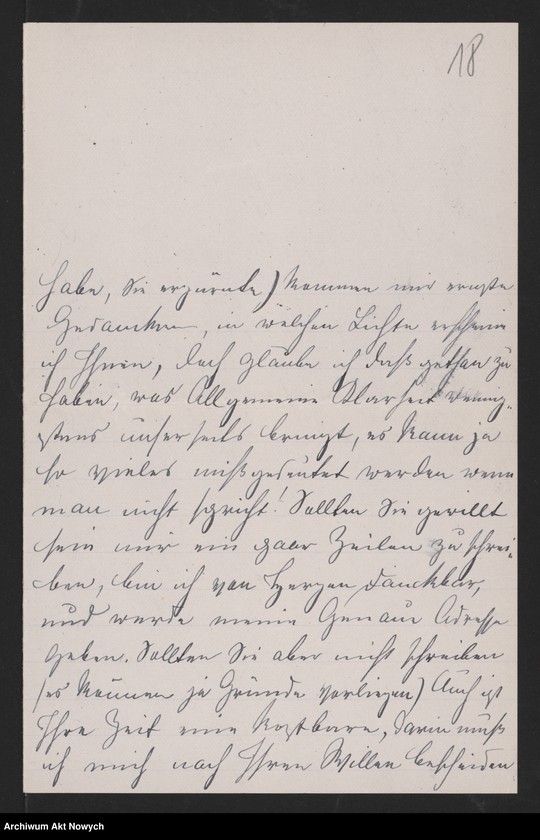 18
habe, Sie erzürnte) kommen mir ernste
Gedanken, in welchen Lichte erscheine
ich Ihnen, doch glaube ich daß gethan zu
haben, was Allgemeine Klarheit wenig-
stens unserseits bringt, es kann ja
so vieles mißgedeutet werden wenn
man nicht spricht! Sollten Sie gewillt
sein mir ein paar Zeilen zu schrei-
ben, bin ich von Herzen danckbar,
und werde meine Genaue Adresse
geben. Sollten Sie aber nicht schreiben
(es können ja Gründe vorliegen) Auch ist
Ihre Zeit eine kostbare, darin muß
ich mich nach Ihren Willen bescheiden
Archiwum Akt Nowych